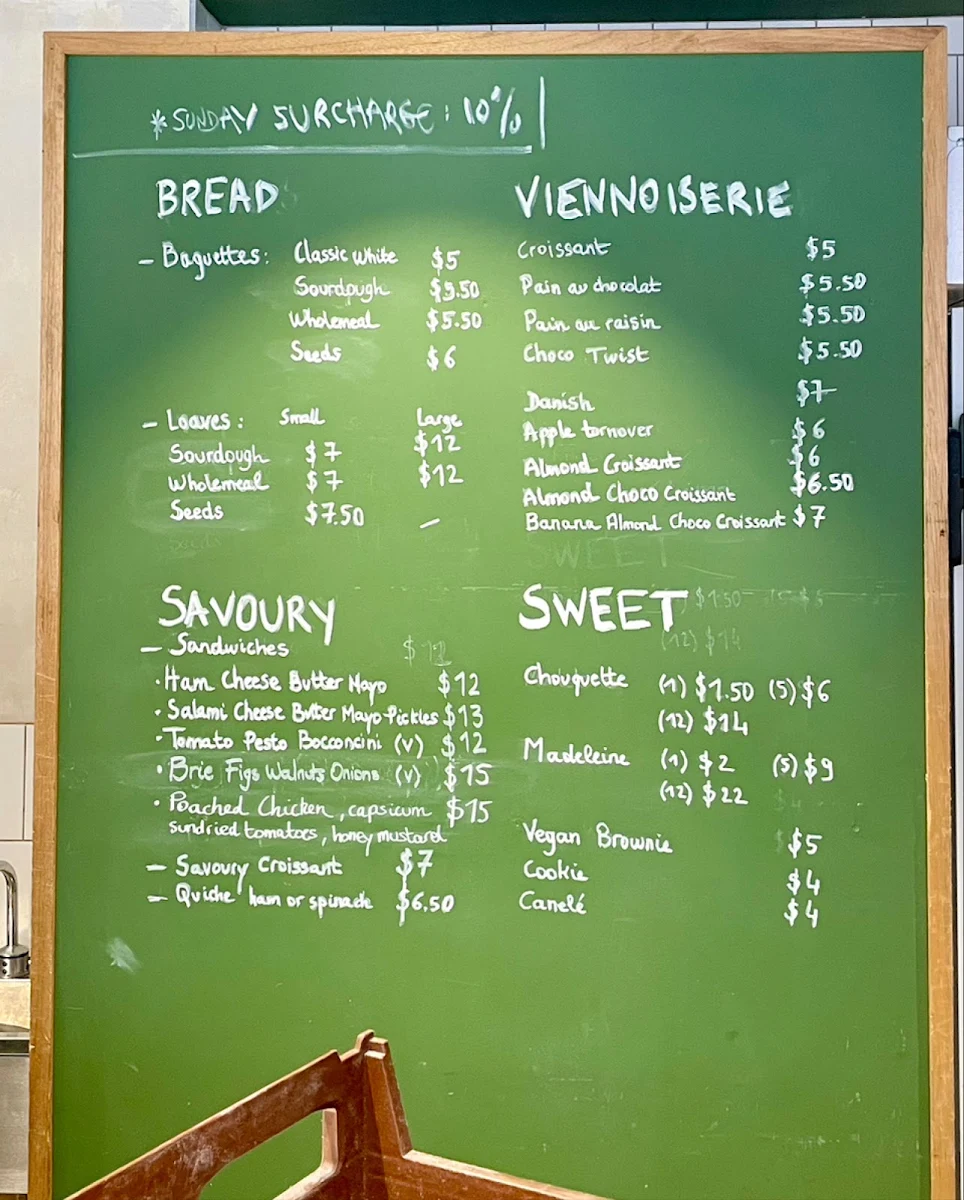 *SUNDAY SURCHARGE: 10%
BREAD
- Baguettes: Classic White $5
Sourdough $5.50
Wholemeal $5.50
Seeds $6
- Loaves: Small Large
Sourdough $7 $12
Wholemeal $7 $12
Seeds $7.50 -
VIENNOISERIE
Croissant $5
Pain au chocolat $5.50
Pain au raisin $5.50
Choco Twist $5.50
Danish $7
Apple tornover $6
Almond Croissant $6
Almond Choco Croissant $6.50
Banana Almond Choco Croissant $7
SAVOURY
- Sandwiches
· Ham Cheese Butter Mayo $12
· Salami Cheese Butter Mayo Pickles $13
· Tomato Pesto Bocconcini (v) $12
· Brie Figs Walnuts Onions (v) $15
· Poached Chicken, capsicum $15
sundried tomatoes, honey mustard
- Savoury Croissant $7
- Quiche ham or spinach $6.50
SWEET
Chouquette (1) $1.50 (5) $6
(12) $14
Madeleine (1) $2 (5) $9
(12) $22
Vegan Brownie $5
Cookie $4
Canelé $4